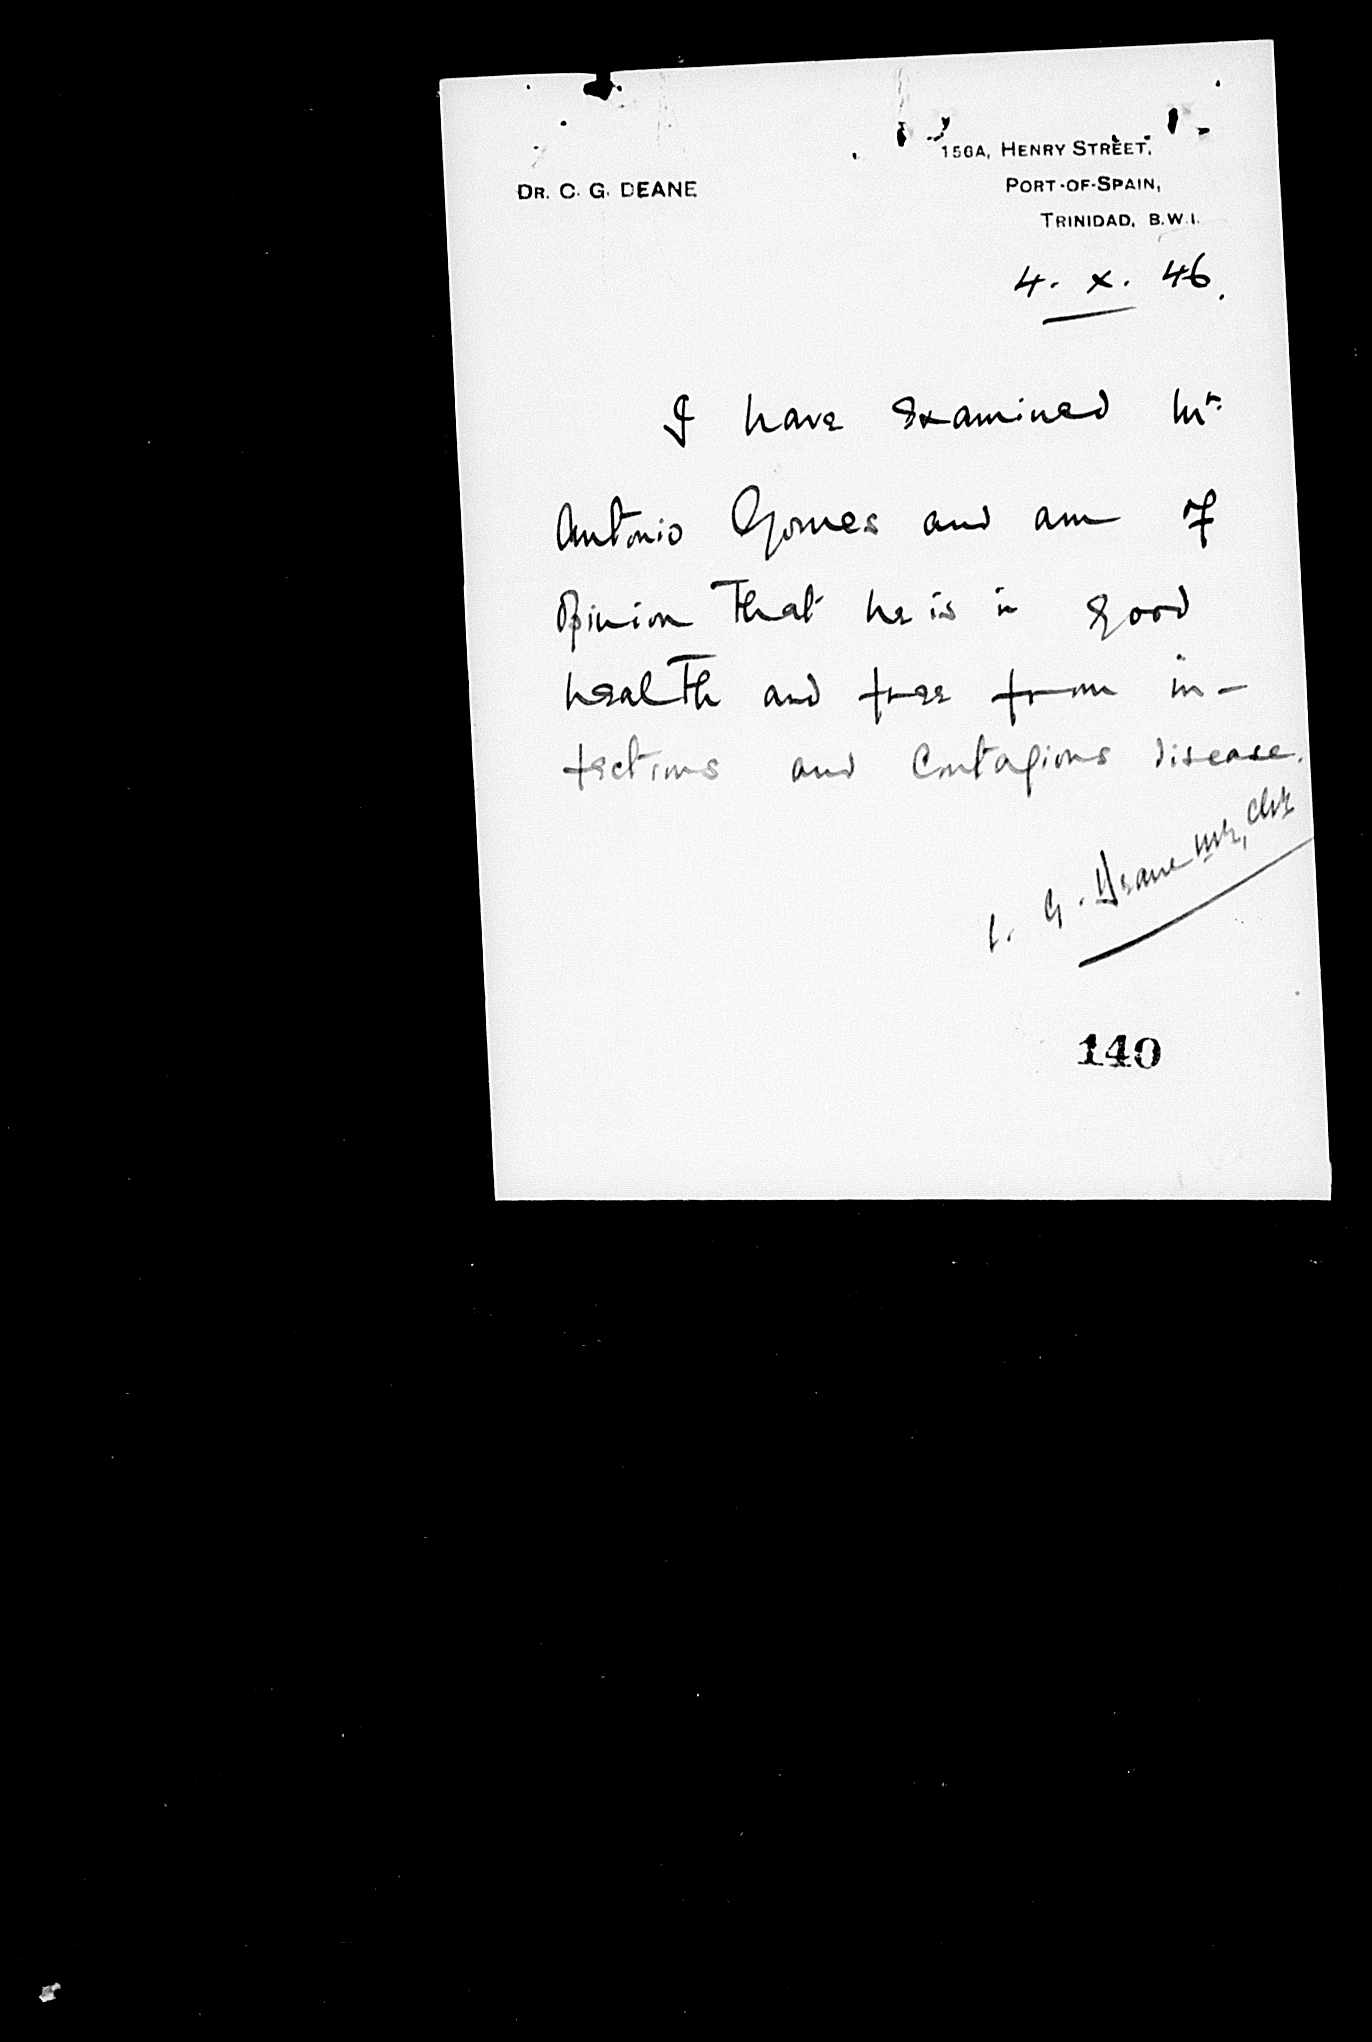 DR. C. G. DEANE
156A, HENRY STREET,
PORT-OF-SPAIN,
TRINIDAD, B.W.I.
4. x. 46.
I have examined Mr.
Antonio Gomes and am of
opinion that he is in good
health and free from in-
fectious and contagious disease.
C. G. Deane MB, ChB
140